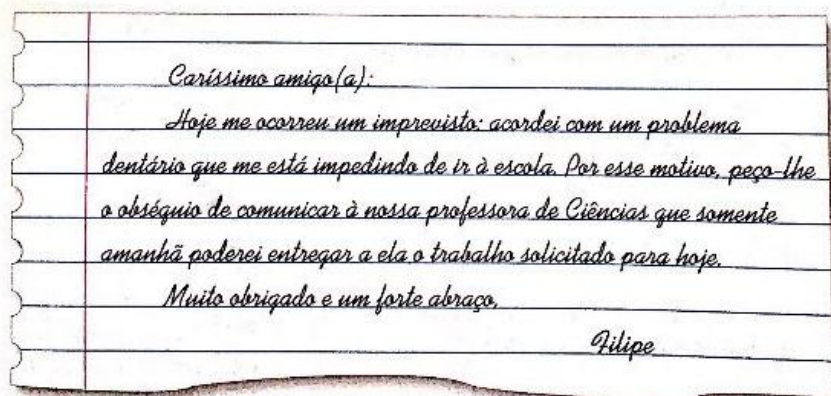 Caríssimo amigo(a):
Hoje me ocorreu um imprevisto: acordei com um problema
dentário que me está impedindo de ir à escola. Por esse motivo, peço-lhe
o obséquio de comunicar à nossa professora de Ciências que somente
amanhã poderei entregar a ela o trabalho solicitado para hoje.
Muito obrigado e um forte abraço,
Filipe